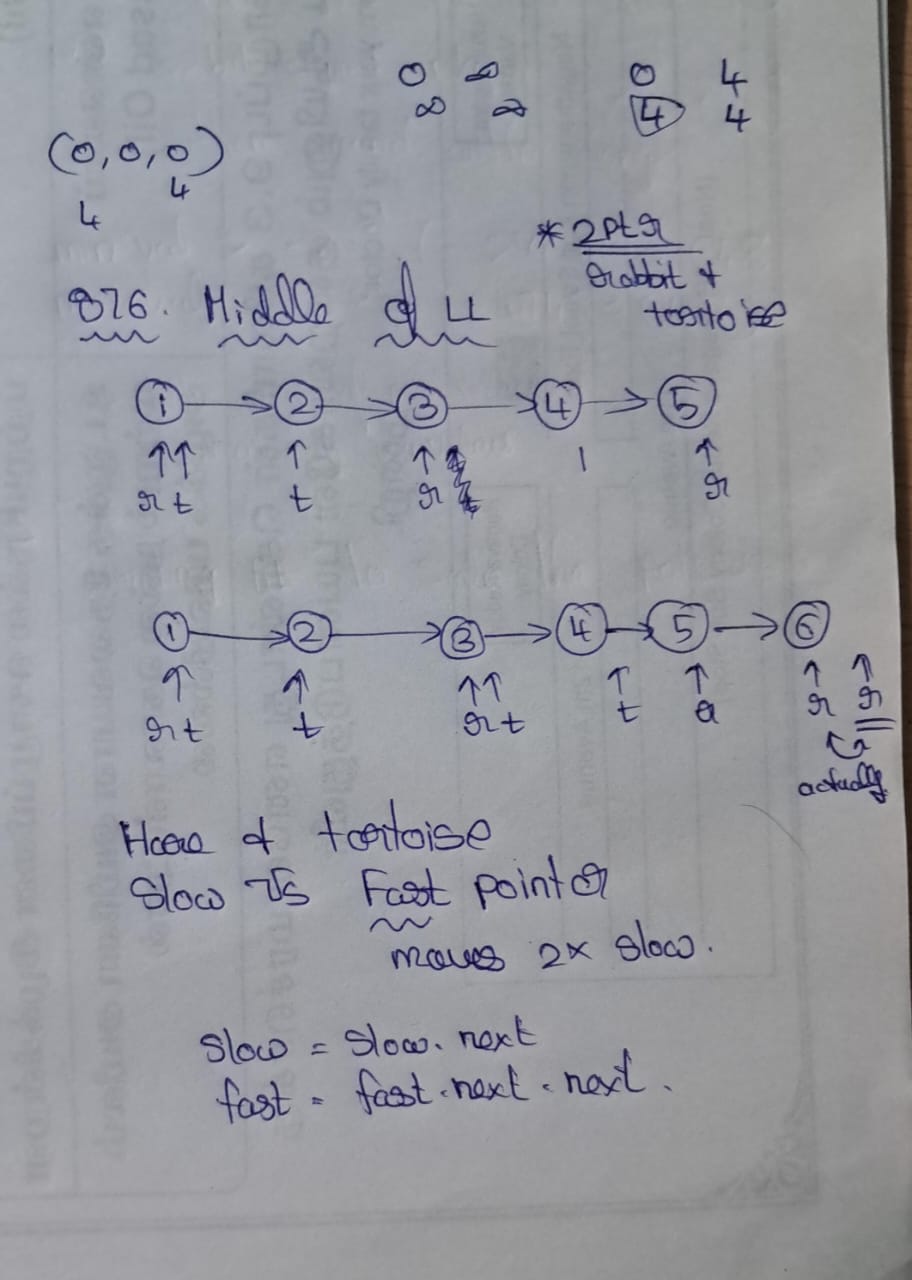 0 ∞ 0 4
∞ ∞ 4 4
(0,0,0)
4
4
* 2Ptr
rabbit &
tortoise
876. Middle of LL
1 2 3 4 5
r t t r r
1 2 3 4 5 6
r t t r t t r r r
actually
Hare & tortoise
Slow vs Fast pointer
moves 2x slow.
slow = slow.next
fast = fast.next.next.